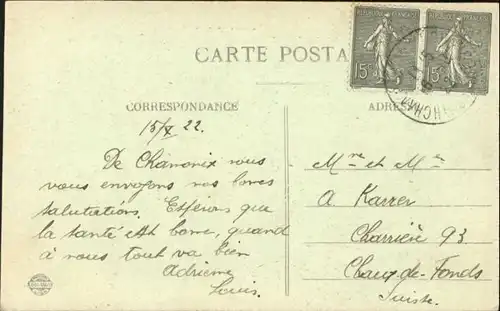 REPUBLIQUE FRANÇAISE
15c
REPUBLIQUE FRANÇAISE
15c
CARTE POSTA
CORRESPONDANCE
ADRES
15/X 22.
De Chamonix nous
vous envoyons nos bonnes
salutations. Espérons que
la santé est bonne, quand
à nous tout va bien
Adrienne
Louis.
Mr et Me
A Karrer
Charrière 93
Chaux-de-Fonds
Suisse.